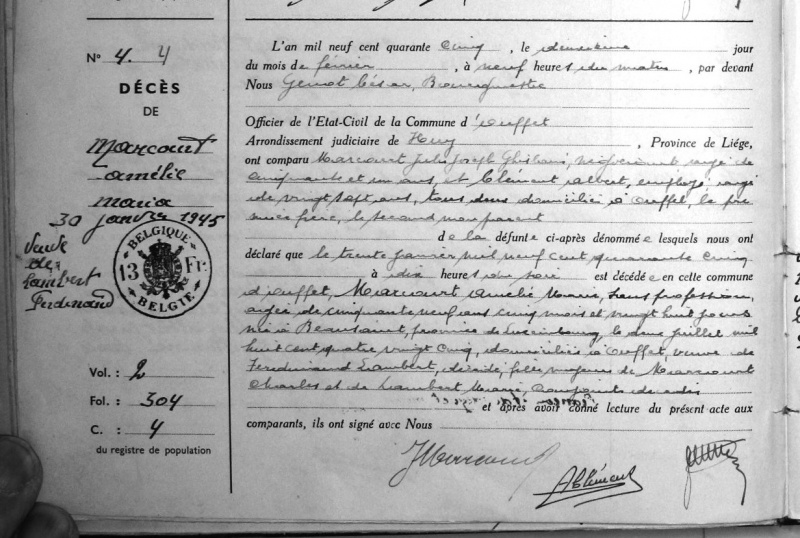 N° 4. 4
DÉCÈS
DE
Marcourt
Amélie
Maria
30 janvier 1945
Veuve
de
Lambert
Ferdinand
BELGIQUE
13 Fr.
BELGIE
Vol. : 2
Fol. : 304
C. : 4
du registre de population
L'an mil neuf cent quarante cinq, le deuxième jour
du mois de février, à neuf heures du matin, par devant
Nous Genot César, Bourgmestre
Officier de l'Etat-Civil de la Commune d'Ouffet
Arrondissement judiciaire de Huy, Province de Liége,
ont comparu Marcourt Jules Joseph Ghislain, âgé de
cinquante et un ans, et Clément Albert, employé âgé
de vingt sept ans, tous deux domiciliés à Ouffet, le pre
mier frère, le second non parent
de la défunte ci-après dénommée lesquels nous ont
déclaré que le trente janvier mil neuf cent quarante cinq
à dix heures du soir est décédée en cette commune
d'Ouffet, Marcourt Amélie Marie, sans profession,
âgée de cinquante neuf ans cinq mois et vingt huit jours
née à Beausaint, province de Luxembourg, le deux juillet mil
huit cent quatre vingt cinq, domiciliée à Ouffet, veuve de
Ferdinand Lambert, décédé, fille majeure de Marcourt
Charles et de Lambert Marie, conjoints décédés
et après avoir donné lecture du présent acte aux
comparants, ils ont signé avec Nous
J Marcourt
A Clément